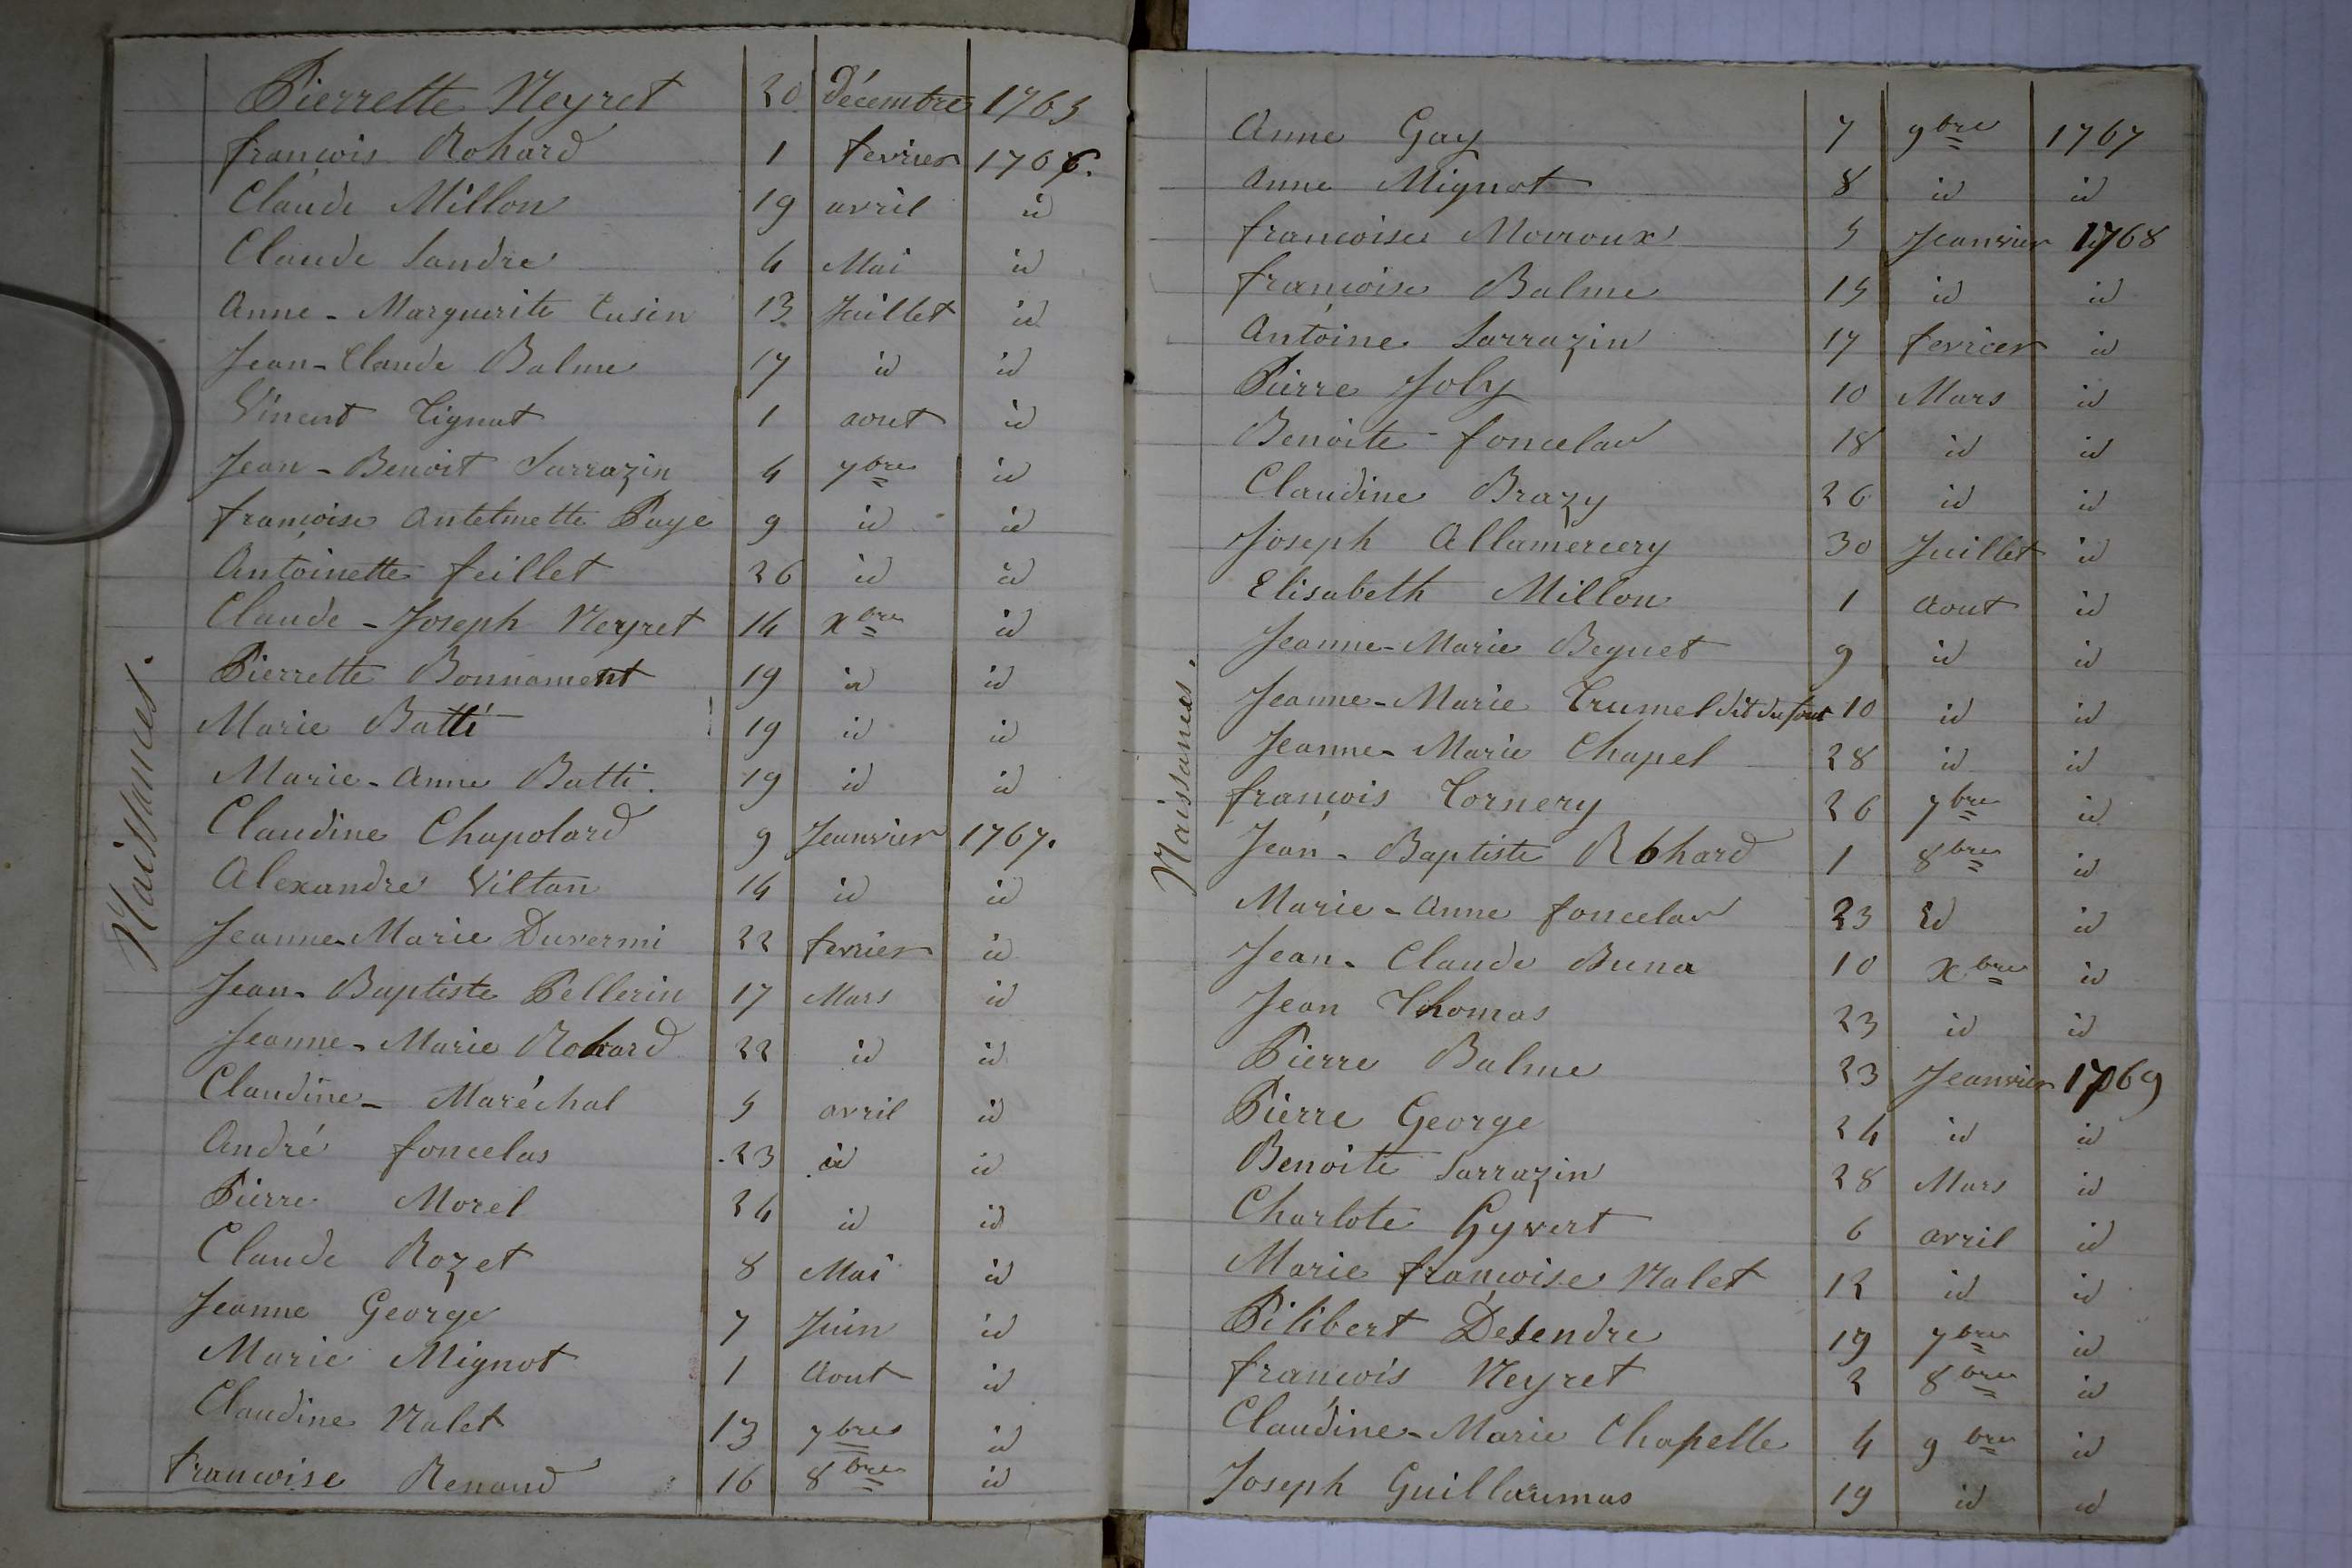 Naissances.
Pierrette Neyret 20 décembre 1765
françois Rohard 1 fevrier 1766.
Claude Millon 19 avril id
Claude Landre 4 Mai id
Anne - Marguerite Cusin 13 Juillet id
Jean - Claude Balme 17 id id
Vincent Tignat 1 aout id
Jean - Benoit Sarrazin 4 7bre id
françoise Antelmette Page 9 id id
Antoinette feillet 26 id id
Claude - Joseph Neyret 14 xbre id
Pierrette Bonnament 19 id id
Marie Batti 19 id id
Marie - Anne Batti. 19 id id
Claudine Chapolard 9 Jeanvier 1767.
Alexandre Viltan 14 id id
Jeanne Marie Duvermi 22 fevrier id
Jean - Baptiste Pellerin 17 Mars id
Jeanne - Marie Rohard 22 id id
Claudine - Maréchal 5 avril id
André foncelas 23 id id
Pierre Morel 24 id id
Claude Rozet 8 Mai id
Jeanne George 7 Juin id
Marie Mignot 1 Aout id
Claudine Nalet 13 7bres id
francoise Renaud 16 8bre id
Naissances.
Anne Gay 7 9bre 1767
Anne Mignot 8 id id
françoise Moiroux 5 Jeanvier 1768
françoise Balme 15 id id
Antoine Sarrazin 17 fevrier id
Pierre Joly 10 Mars id
Benoite foncelas 18 id id
Claudine Brazy 26 id id
Joseph Allamercery 30 Juillet id
Elisabeth Millon 1 Aout id
Jeanne - Marie Beguet 9 id id
Jeanne - Marie Trumel dit du four 10 id id
Jeanne - Marie Chapel 28 id id
françois Tornery 26 7bre id
Jean - Baptiste Rohard 1 8bre id
Marie - Anne foncelas 23 id id
Jean - Claude Buna 10 xbre id
Jean Thomas 23 id id
Pierre Balme 23 Jeanvier 1769
Pierre George 24 id id
Benoite Sarrazin 28 Mars id
Charlote Gyvert 6 avril id
Marie françoise Nalet 12 id id
Pilibert Desendre 19 7bre id
francois Neyret 2 8bre id
Claudine - Marie Chapelle 4 9bre id
Joseph Guillaumas 19 id id